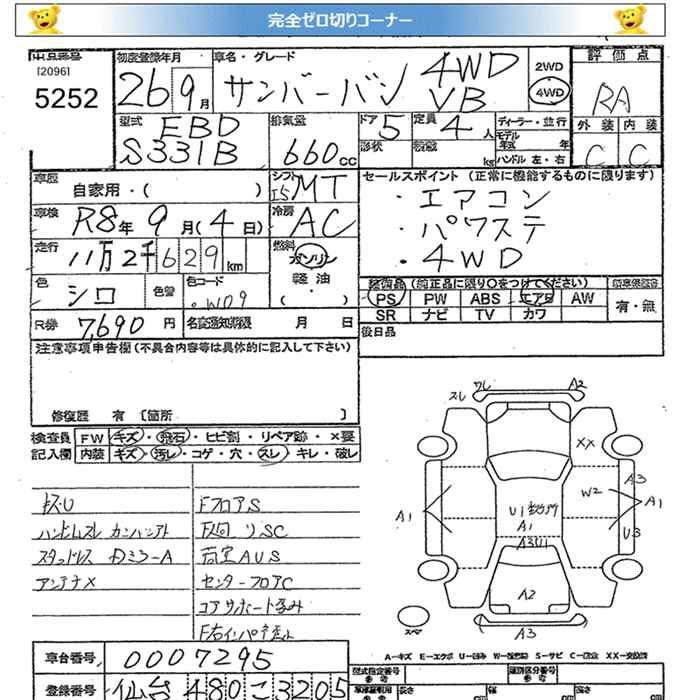 完全ゼロ切りコーナー
出品番号
[2096]
5252
初度登録年月
26 9月
車名・グレード
サンバーバン 4WD VB
2WD
4WD
評価点
RA
型式
EBD
S331B
排気量
660cc
ドア 5
定員 4人
形状
積載 kg
ディーラー・並行
モデル年式 年
ハンドル 左・右
外装 内装
C C
車歴
自家用・( )
シフト
I5 MT
セールスポイント (正常に機能するものに限ります)
・エアコン
・パワステ
・4WD
車検
R8年 9月(4日)
冷房
AC
走行
11万2千629km
燃料
ガソリン
軽油
( )
色
シロ
色替
色コード
W09
装備品(純正品に限り○をつけてください)
PS PW ABS エアB AW
SR ナビ TV カワ
有・無
R券
7,690円
名変通知期限 月 日
後日品
注意事項申告欄(不具合内容等は具体的に記入して下さい)
修復歴 有 [箇所 ]
検査員 FW キズ・飛石・ヒビ割・リペア跡・×要
記入欄 内装 キズ・汚レ・コゲ・穴・スレ・キレ・破レ
キズU
FフロアS
ハンドルスレ
スタッドレス
荷室AUS
アンテナX
センターフロアC
コアサポート歪み
スレ
ワレ
A2
XX
A3
W2
A1
A1
U3
U1
A1
A3U1
A2
A3
スペア
A-キズ E-エクボ U-凹み W-波 S-サビ C-腐食 XX-交換済
車台番号
0007295
型式指定番号
参考
類別区分番号
参考
登録番号
仙台 480 こ 3205
長さ
幅
高さ